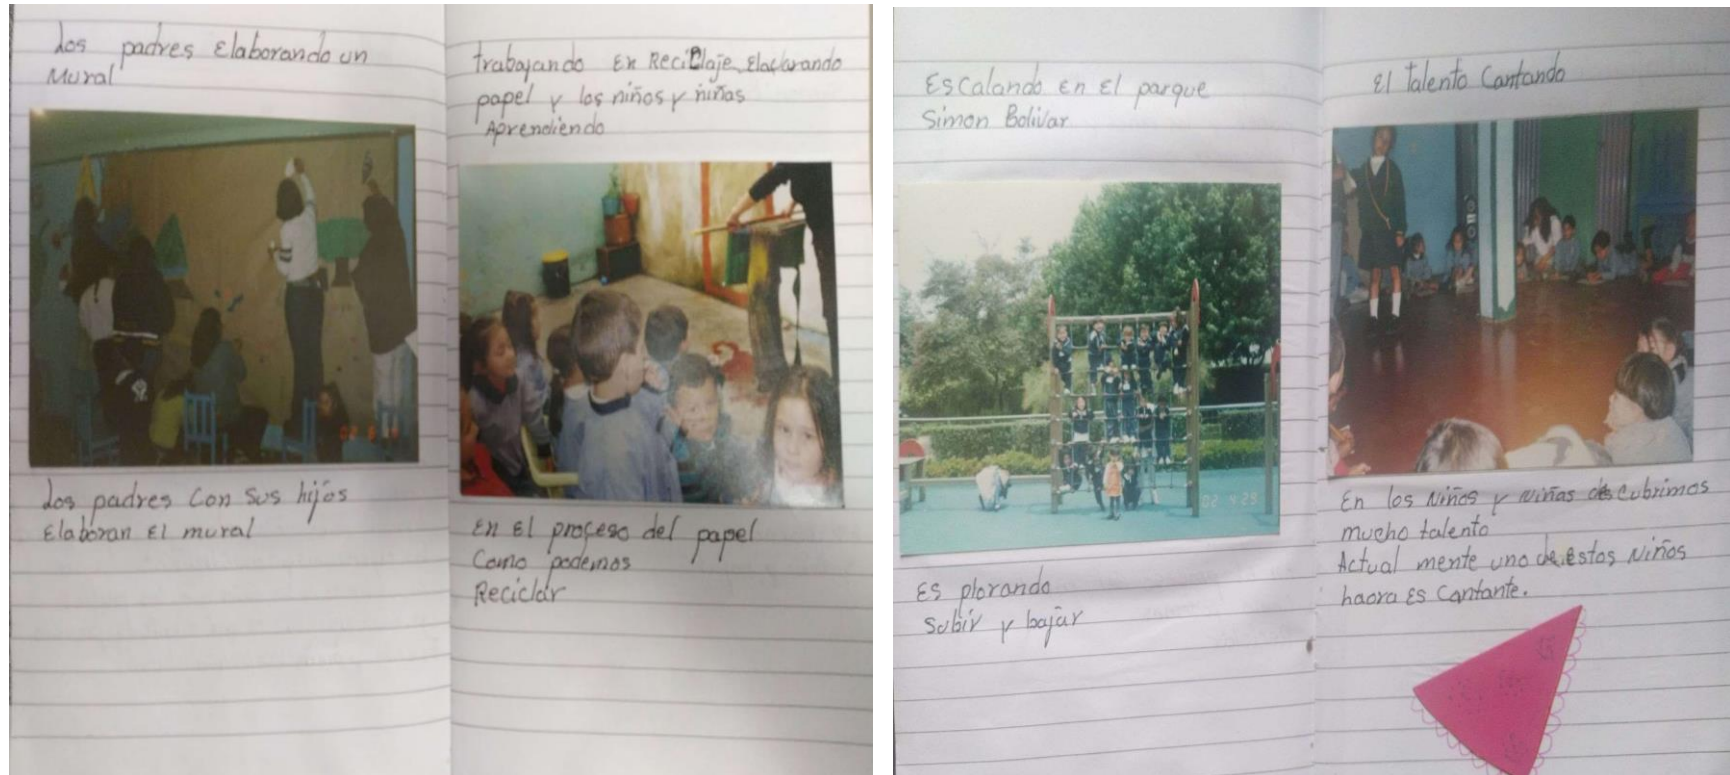 Los padres Elaborando un
Mural
Los padres Con Sus hijos
Elaboran El mural
trabajando En Reciclaje, Elaborando
papel y los niños y niñas
Aprendiendo
En El proceso del papel
Como podemos
Reciclar
EsCalando En El parque
Simon Bolivar
02 4 29
Es plorando
Subir y bajar
El talento Cantando
En los Niños y Niñas desCubrimos
mucho talento
Actual mente uno de estos Niños
haora Es Cantante.